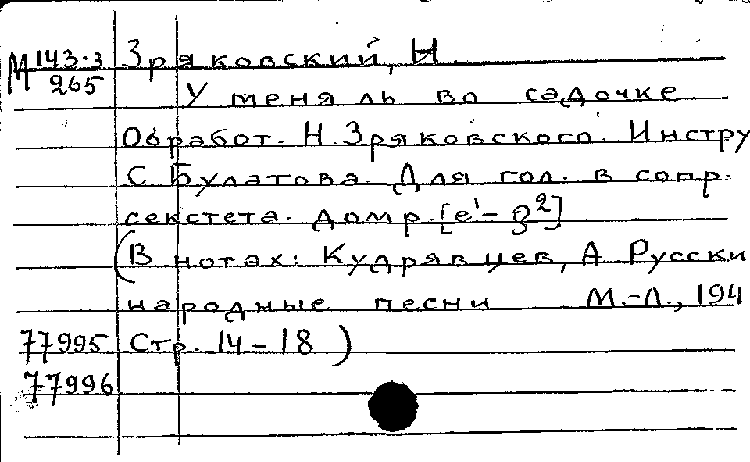 М 143.3 Зряковский, Н.
265 У меня ль во садочке
Обработ. Н. Зряковского. Инстру
С. Булатова. Для гол. в сопр.
секстета. домр. [e¹ – g²]
(В нотах: Кудрявцев, А Русски
народные песни М.-Л., 194
77995 Стр. 14 – 18 )
77996